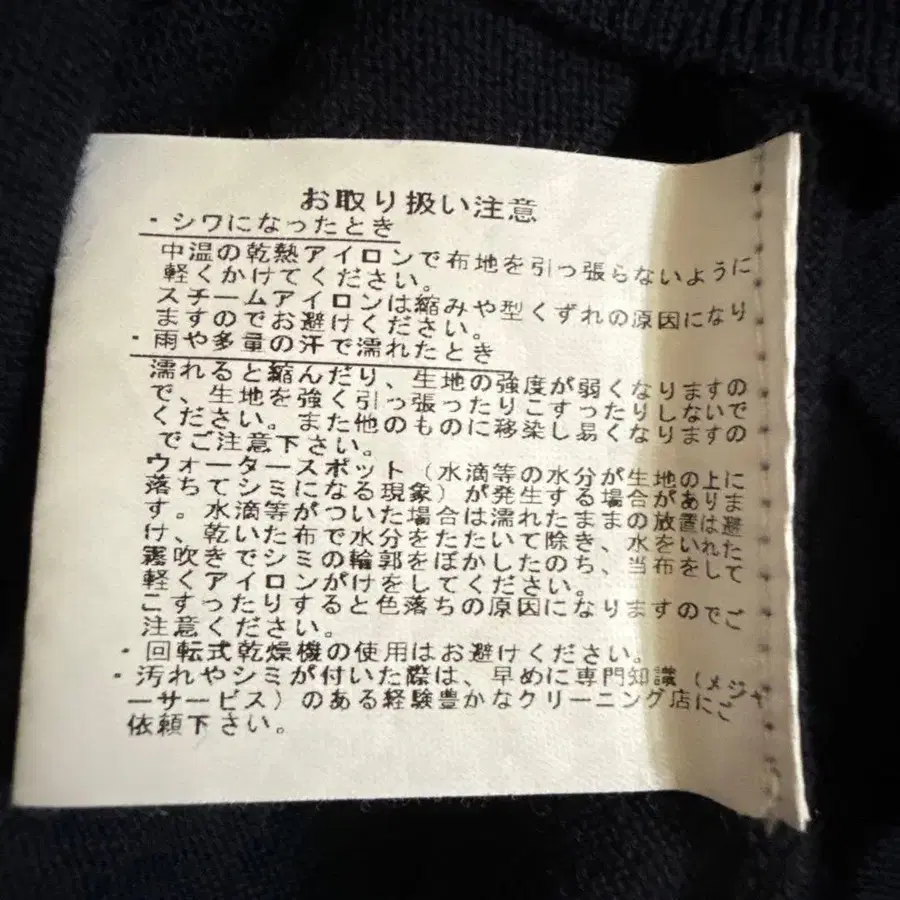 お取り扱い注意
・シワになったとき
中温の乾熱アイロンで布地を引っ張らないように
軽くかけてください。
スチームアイロンは縮みや型くずれの原因になり
ますのでお避けください。
・雨や多量の汗で濡れたとき
濡れると縮んだり、生地の強度が弱くなりますの
で、生地を強く引っ張ったりこすったりしないで
ください。また他のものに移染し易くなりますの
でご注意下さい。
ウォータースポット(水滴等の水分が生地の上に
落ちてシミになる現象)が発生する場合がありま
す。水滴等がついた場合は濡れたままの放置は避
け、乾いた布で水分をたたいて除き、水をいれた
霧吹きでシミの輪郭をぼかしたのち、当布をして
軽くアイロンがけをしてください。
こすったりすると色落ちの原因になりますのでご
注意ください。
・回転式乾燥機の使用はお避けください。
・汚れやシミが付いた際は、早めに専門知識(メジャ
ーサービス)のある経験豊かなクリーニング店にご
依頼下さい。